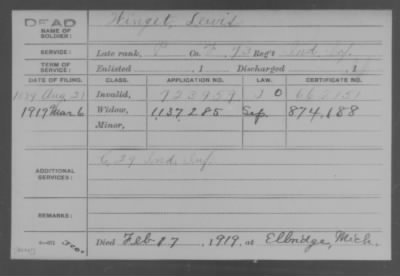 DEAD
NAME OF SOLDIER: Winget, Lewis
SERVICE: Late rank, P Co. F, 73 Reg't Ind. Inf.
TERM OF SERVICE: Enlisted , 1 Discharged , 1
DATE OF FILING. CLASS. APPLICATION NO. LAW. CERTIFICATE NO.
Aug. 21 Invalid, 723959
1919 Mar 6 Widow, 1,137,285 Sep. 874,188
Minor,
ADDITIONAL SERVICES: C, 29 Ind. Inf.
REMARKS:
Died Feb 17 , 1919, at Elbridge, Mich.